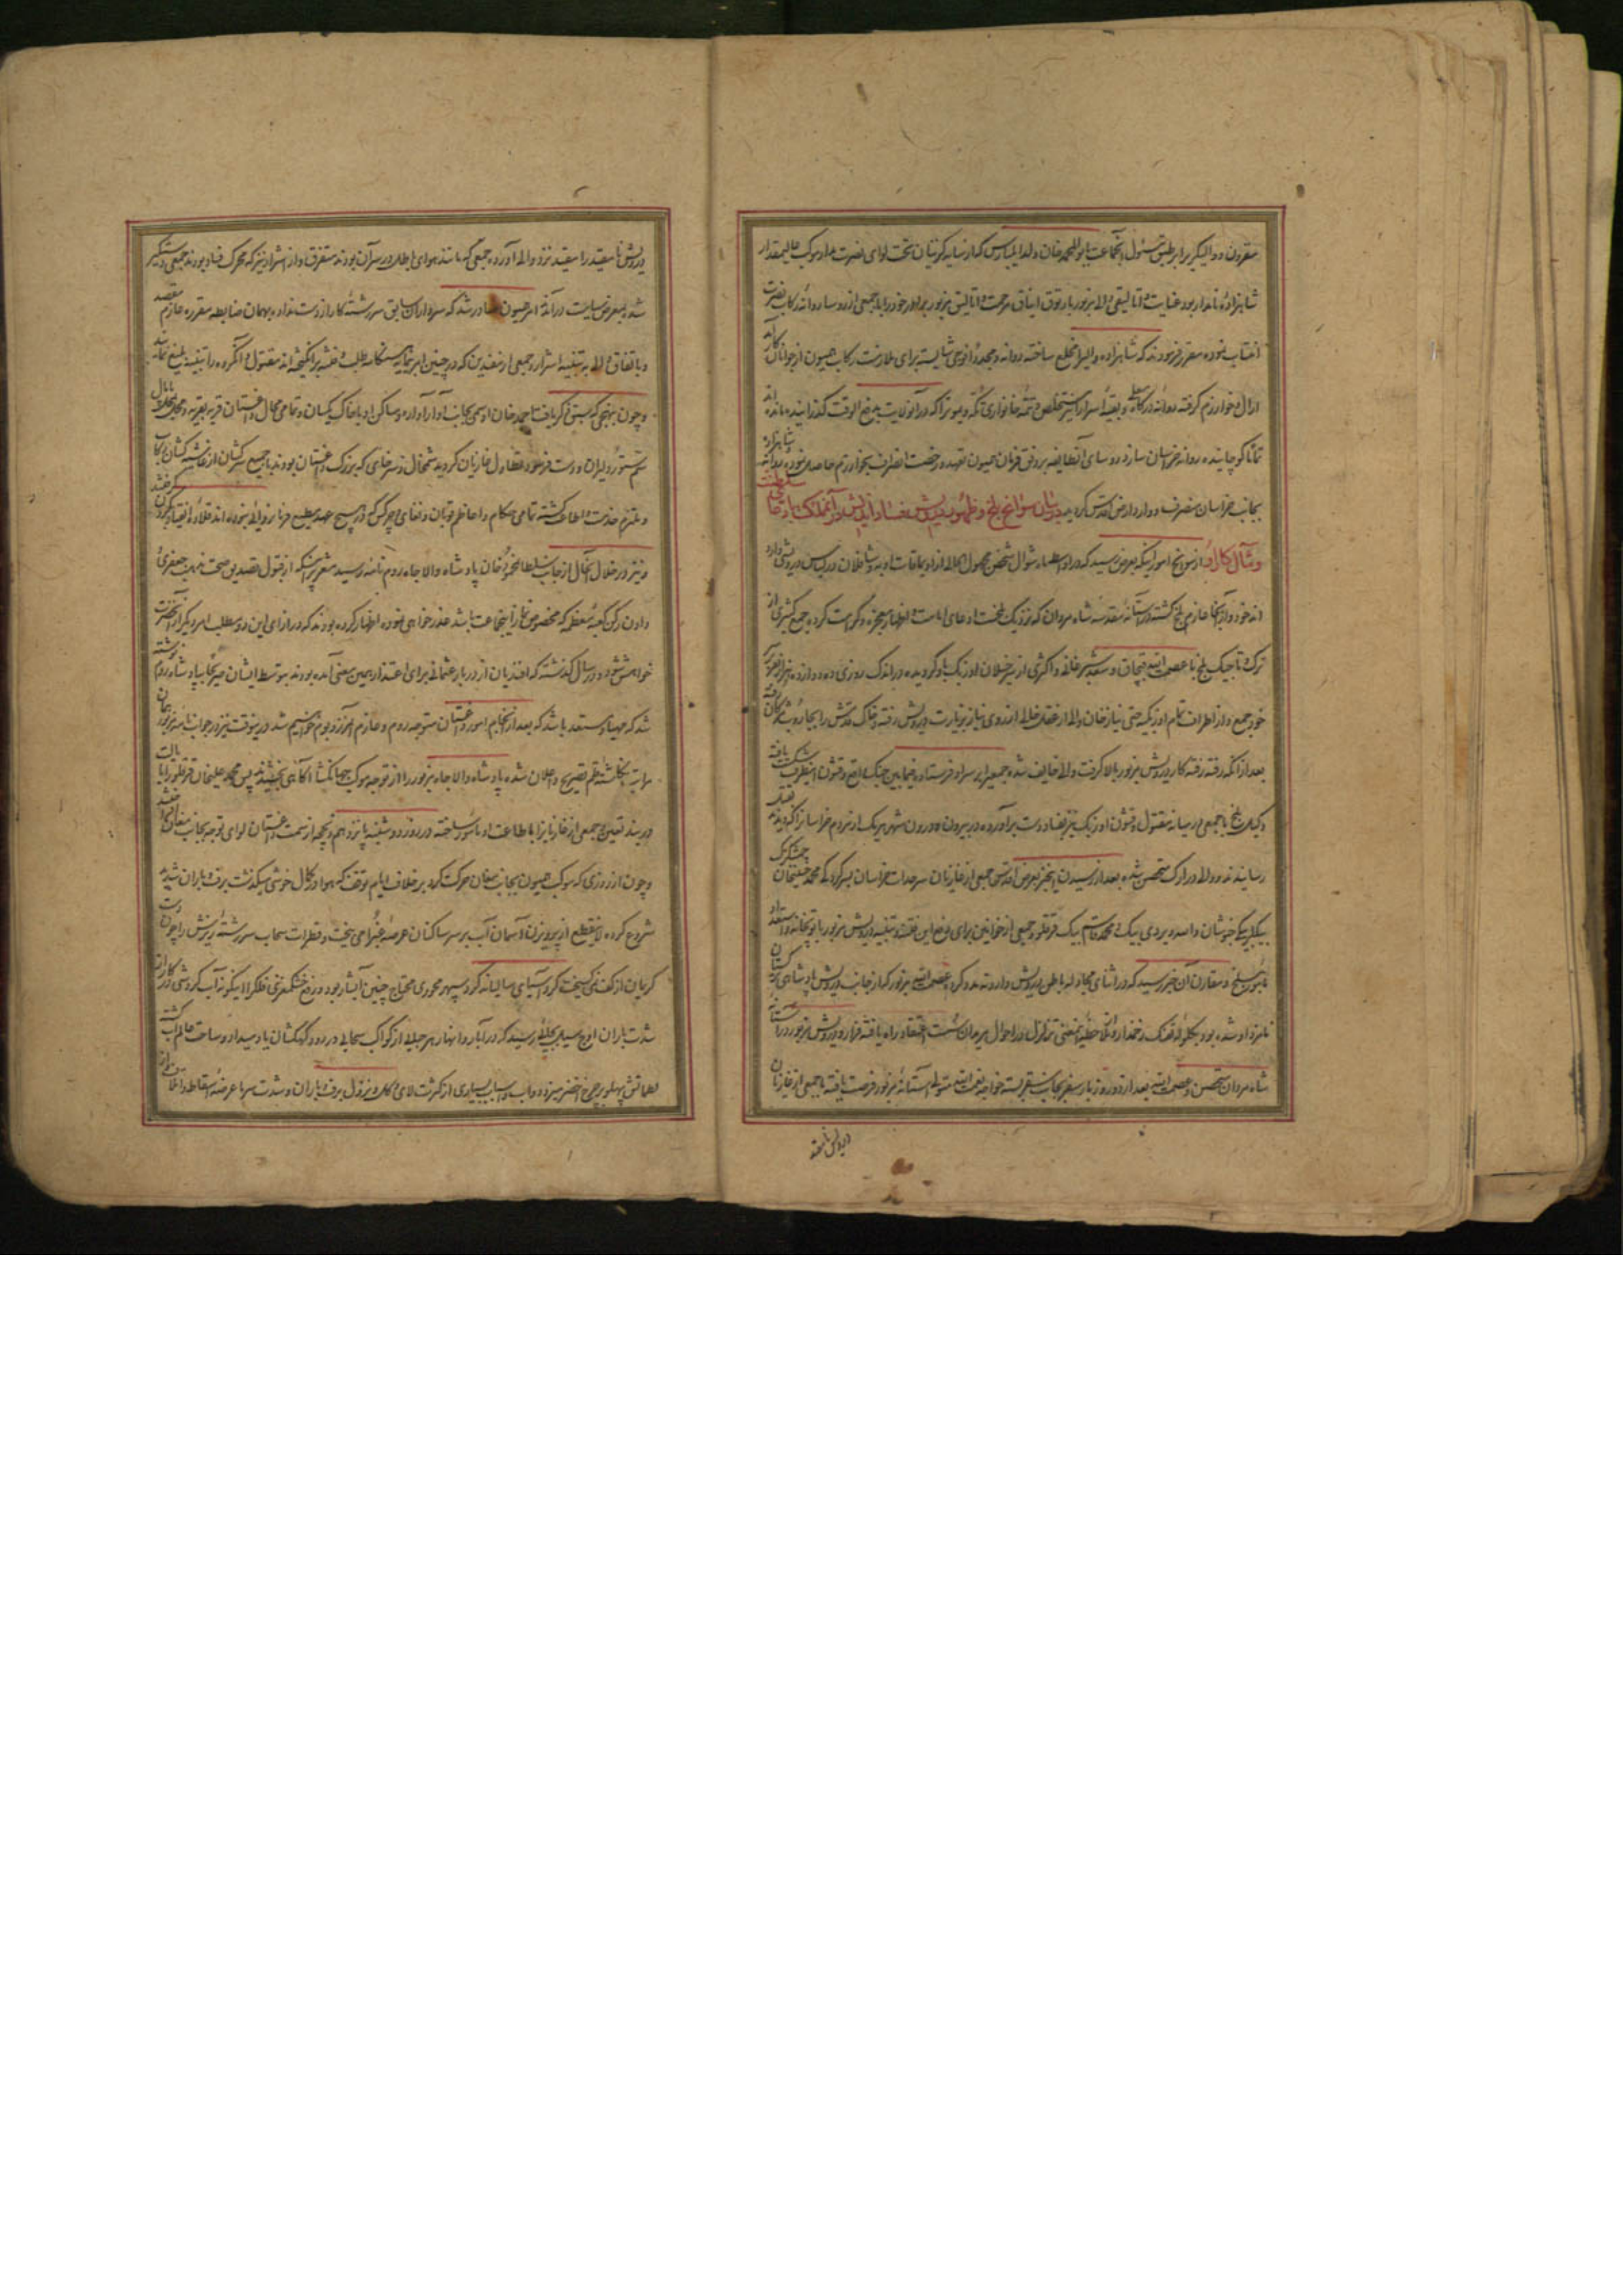 مقرون و والیگیر برابر طبق مسئول آنجماعت بابوالمحمد خان ولد ایلبارس که از سایه گزینان تحت لوای نصرت مدار موکب عالیمقدار
شاهزاده نامدار بود عنایت و اتالیقی والی مزبور بارتوق ایناق مرحمت و اتالیق مزبور برادر خود را با جمعی از رؤسا روانه رکاب نصرت
انتساب نموده مقرر فرمودند که شاهزاده والی را مخلع ساخته روانه و مجدداً فوجی شایسته برای ملازمت رکاب همیون از جوانان کارآمد
ارال و خوارزم گرفته روانه درگاه معلی و بقیه اسرا را نیز مستخلص و تتمه خانواری تکه و یموت را که در آنولایت بدفع الوقت گذرانیده مانده اند
تماما کوچانیده روانه خراسان سازد رؤسای آنطایفه بر وفق فرمان همیون تعهد و رخصت انصراف بخوارزم حاصل نموده شاهزاده روانه
بجانب خراسان منصرف و وارد ارض اقدس گردید در بیان سوانح بلخ و ظهور درویش فساد اندیش در آنمملکت با دغا
و مآل کار او از سوانح امور اینکه بعرض رسید که در اواسط ماه شوال شخص مجهول الحالی از اویماقات اوبه و شافلان در لباس درویشی وارد
اندخود و از آنجا عازم بلخ گشته در آستانه مقدسه شاه مردان که نزدیک بلخست ادعای امامت و اظهار معجزه و کرامت کرده جمع کثیری از
ترک و تاجیک بلخ با عصمت الله قبچاق و سعید شبرغانی و اکثری از سرخیلان اوزبک باو گرویده در اندک روزی ده دوازده هزار نفر بر سر
خود جمع و از اطراف تمام اوزبکیه حتی نیاز خان والی از عقد خللی از روی نیاز بزیارت درویش رفته و خاک قدمش را بجاروب مژگان رفته
بعد از آنکه رفته رفته کار درویش مزبور بالا گرفت والی خایف شده جمعی را بر سر او فرستاد و فیمابین جنگ واقع و قشون اینطرف شکست یافته
وکیل بلخ با جمعی در میانه مقتول و قشون اوزبک نیز بفساد دست برآورده در بیرون و درون شهر هر یک از مردم خراسانرا که دیدند بقتل
رسانیدند و والی در ارک متحصن شده بعد از رسیدن این خبر بعرض اقدس جمعی از غازیان سرحدات خراسان بسرکردگی محمد حسینخان چمشکزک
بیگلربیگی خبوشان و اسمه ویردی بیک و محمد قاسم بیک قرقلو و جمعی از خوانین برای دفع این فتنه و تنبیه درویش مزبور با توپخانه و استعداد
مامور بلخ و مقارن آن خبر رسید که در اثنای مجادله باطن درویش دار و ندید و کرد عصمت الله مزبور که از جانب درویش پادشاهی ترکستان
نامزد او شده بود بگلوله تفنگ زخمدار و بملاحظه اینمعنی تزلزل در احوال مریدان سست اعتقاد راه یافته فرار و درویش مزبور در آستانه
شاه مردان متحصن و عصمت الله بعد از دو روز بار سفر بجانب سقر بسته خواجه نعمت الله متولی آستانه مزبور فرصت یافته با جمعی از غازیان
درویش نامقید
درویش نامقید را مقید نزد والی آورده جمعی که مانند هوای باطل در سر آن بودند متفرق و از اشرار نیز که محرک فساد بودند جمعی دستگیر
شده بمعرض سیاست درآمد امر همیون صادر شد که سرداران سابق سررشته کار از دست نداده بهمان ضابطه مقرره عازم مقصد
و باتفاق والی به تنبیه اشرار و جمعی از مفسدین که در چنین امر نمایان هنگامه طلب و فتنه برانگیخته اند مقتول و آنگروه را تنبیه بلیغ نمایند
و چون بنهجی که سبق ذکر یافت احمد خان اوسمی بجانب آوار آواره و مساکن او با خاک یکسان و تمامی محال داغستان قریه بقریه و محل بمحل پامال
سم ستور دلیران و دست فرسود تطاول غازیان گردید شمخال و سرخای که بزرگ داغستان بودند با جمیع سرکشان از غاشیه کشان رکاب
و ملتزم خدمت و اطاعت گشته تمامی حکام و اعاظم قوبان و اقاصی چرکس که در هیچ عهد مطیع فرمانروایی نبوده اند قلاده انقیاد بگردن گرفتند
و نیز در خلال آنحال از جانب سلطان محمود خان پادشاه والاجاه روم نامه رسید مشعر بر اینکه از قبول تصدیق صحت مذهب جعفری
دادن رکن کعبه معظمه که مخصوص نماز اینجماعت باشد عذر خواهی نموده اظهار کرده بودند که در ازای این دو مطلب امر دیگر از آنحضرت
خواهش شود و در سال گذشته که افندیان از دربار عثمانی برای اعتذار همین معنی آمده بودند بتوسط ایشان صریحا بپادشاه روم نوشته
شد که مهیا و مستعد باشد که بعد از انجام امور داغستان متوجه روم و عازم آنمرز و بوم خواهیم شد درینوقت نیز در جواب نامه مزبور همان
مراتب بکلک شبه رقم تصریح و اعلان شده پادشاه والاجاه مزبور را از توجه موکب جهانگشا آگاهی بخشیدند پس محمد علیخان قرقلو را با ایالت
دربند تعیین و جمعی از غازیانرا باطاعت او مامور ساخته در روز دوشنبه پانزدهم ذیحجه از سمت داغستان لوای توجه بجانب مغان افراختند
و چون از روزی که موکب همیون بجانب مغان حرکت کرد بر خلاف ایام توقف که هوا در کمال خوشی میگذشت برف و باران شدید
شروع کرده لاینقطع از پرویزن آسمان آب بر سر ساکنان عرصه غبرا می بیخت و قطرات سحاب سررشته ریزش را چون دست
کریمان از کف نمی گسیخت گردآسیای سالیانه گرد سپهر محوری محتاج چنین آبشار بود و در رفع خشکمغزی فلک را اینگونه آب گردشی در کار از
شدت باران اوج سیلاب بجائی رسید که در آبار و انهار هر حبابی از کواکب سحابی در رود کهکشان یاد میداد و ساحت عالم آب گشت
تلاطمش پهلو بر چرخ اخضر میزد دواب و اسباب بسیاری از کثرت لای و گل و نزول برف و باران و شدت سرما عرضه اسقاط و اتلاف شد از